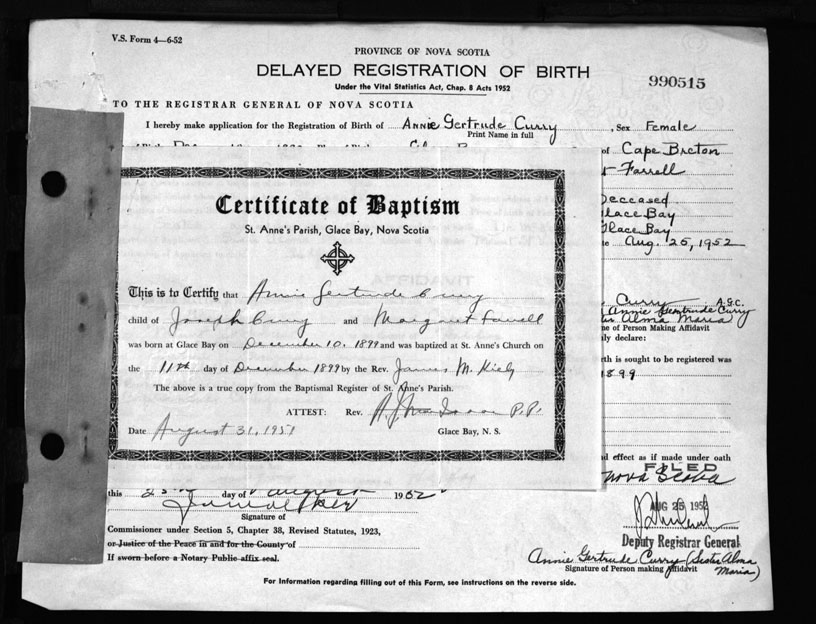 V.S. Form 4—6-52
PROVINCE OF NOVA SCOTIA
DELAYED REGISTRATION OF BIRTH
990515
Under the Vital Statistics Act, Chap. 8 Acts 1952
TO THE REGISTRAR GENERAL OF NOVA SCOTIA
I hereby make application for the Registration of Birth of Annie Gertrude Curry, Sex Female
Print Name in full
of Cape Breton
Farrell
Deceased
Glace Bay
Glace Bay
Aug. 25, 1952
Certificate of Baptism
St. Anne's Parish, Glace Bay, Nova Scotia
This is to Certify that Annie Gertrude Curry
child of Joseph Curry and Margaret Farrell
was born at Glace Bay on December 10, 1899 and was baptized at St. Anne's Church on
the 11th day of December 1899 by the Rev. James M. Kiely
The above is a true copy from the Baptismal Register of St. Anne's Parish.
ATTEST: Rev. P.P.
Date August 31, 1951 Glace Bay, N. S.
AFFIDAVIT
Curry A.G.C.
Annie Gertrude Curry
Alma Maria
me of Person Making Affidavit
ly declare:
th is sought to be registered was
1899
d effect as if made under oath
FILED
Nova Scotia
this day of August 1952
Signature of
AUG 25 1952
Commissioner under Section 5, Chapter 38, Revised Statutes, 1923,
or Justice of the Peace in and for the County of
Deputy Registrar General
If sworn before a Notary Public affix seal.
Annie Gertrude Curry (Sister Alma Maria)
Signature of Person making Affidavit
For Information regarding filling out of this Form, see instructions on the reverse side.